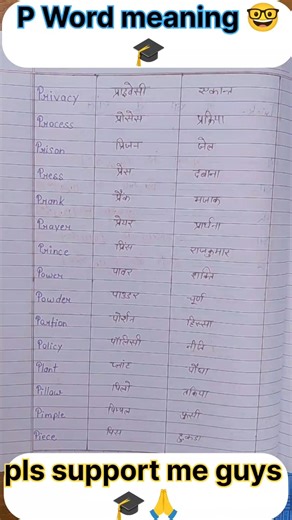 P Word meaning 🤓
🎓
Privacy प्राइवेसी एकान्त
Process प्रोसेस प्रक्रिया
Prison प्रिजन जेल
Press प्रेस दबाना
Prank प्रैंक मजाक
Prayer प्रेयर प्रार्थना
Prince प्रिंस राजकुमार
Power पावर शक्ति
Powder पाउडर चूर्ण
Partion पोर्शन हिस्सा
Policy पॉलिसी नीति
Plant प्लांट पौधा
Pillow पिलो तकिया
Pimple पिम्पल फुंसी
Piece पिस टुकड़ा
pls support me guys
🎓 🙏